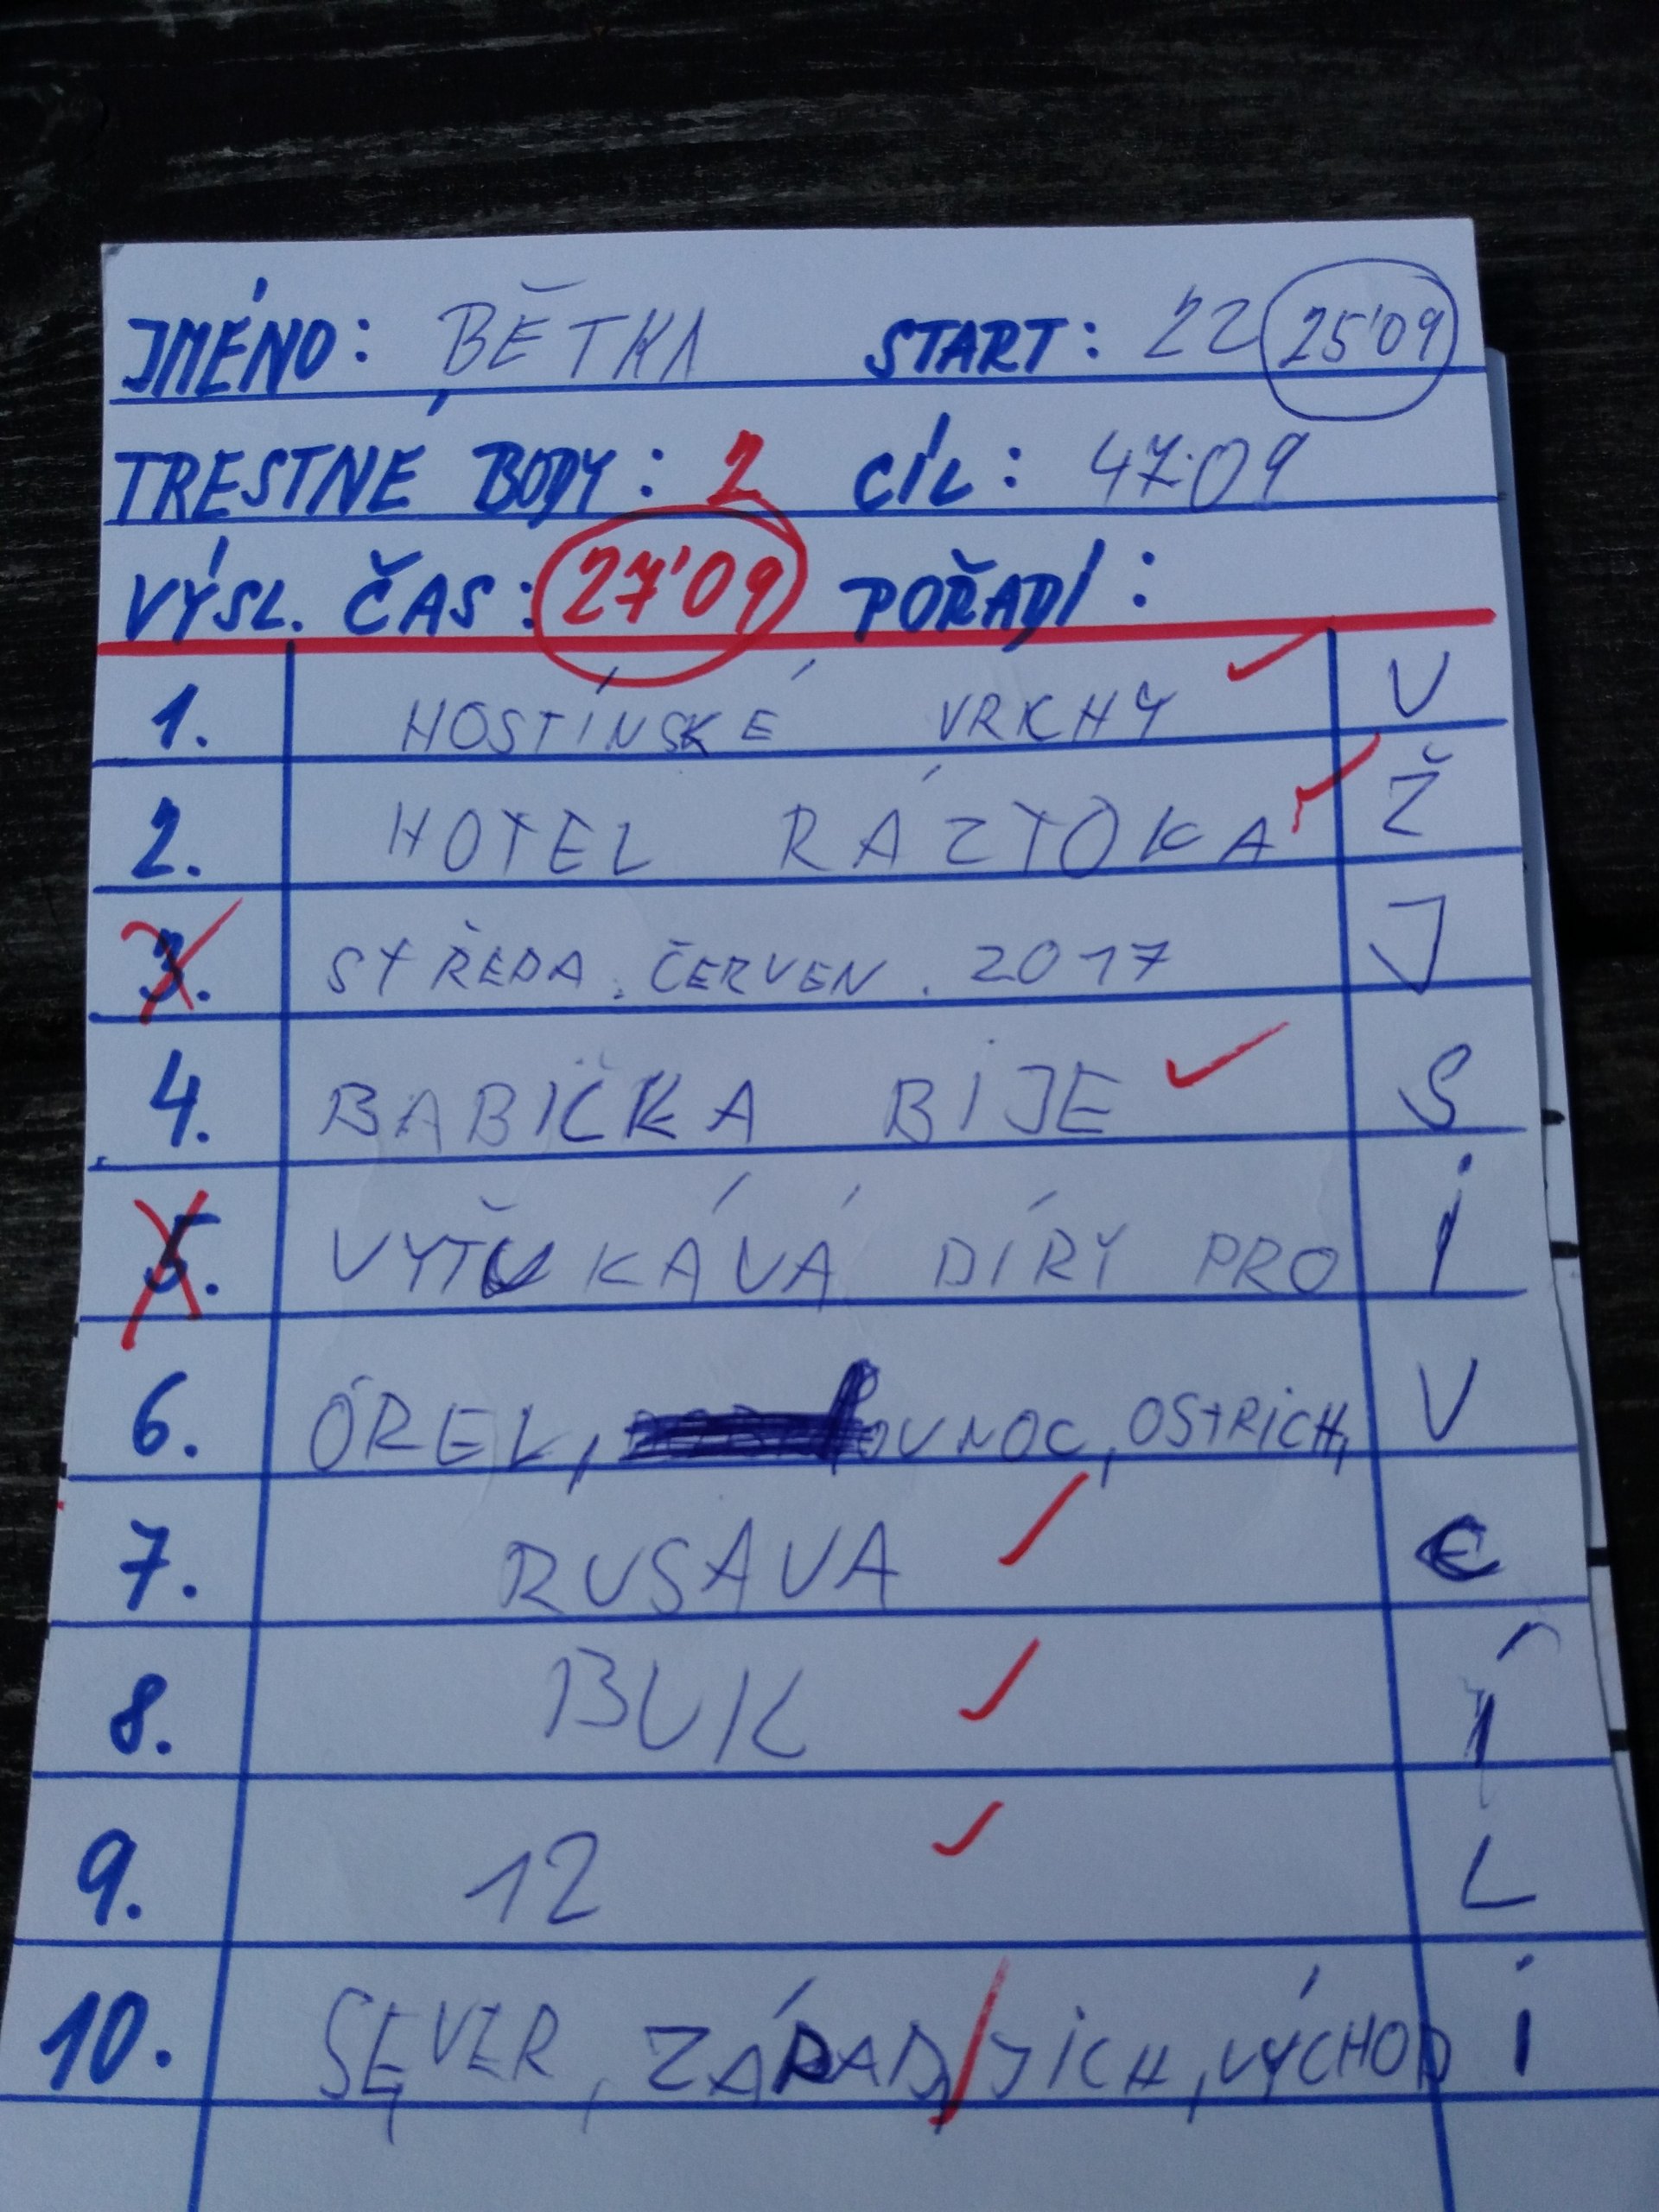 JMÉNO: BĚTKA START: 22 25'09
TRESTNÉ BODY: 2 CÍL: 47:09
VÝSL. ČAS: 27'09 POŘADÍ:
1. HOSTÍNSKÉ VRCHY V
2. HOTEL RÁZTOKA Ž
3. STŘEDA. ČERVEN. 2017 J
4. BABIČKA BIJE S
5. VYŤUKÁVÁ DÍRY PRO I
6. OREL, OVNOC, OSTRICH, V
7. RUSAVA E
8. BUK Í
9. 12 L
10. SEVER, ZÁPAD, JICH, VÝCHOD I